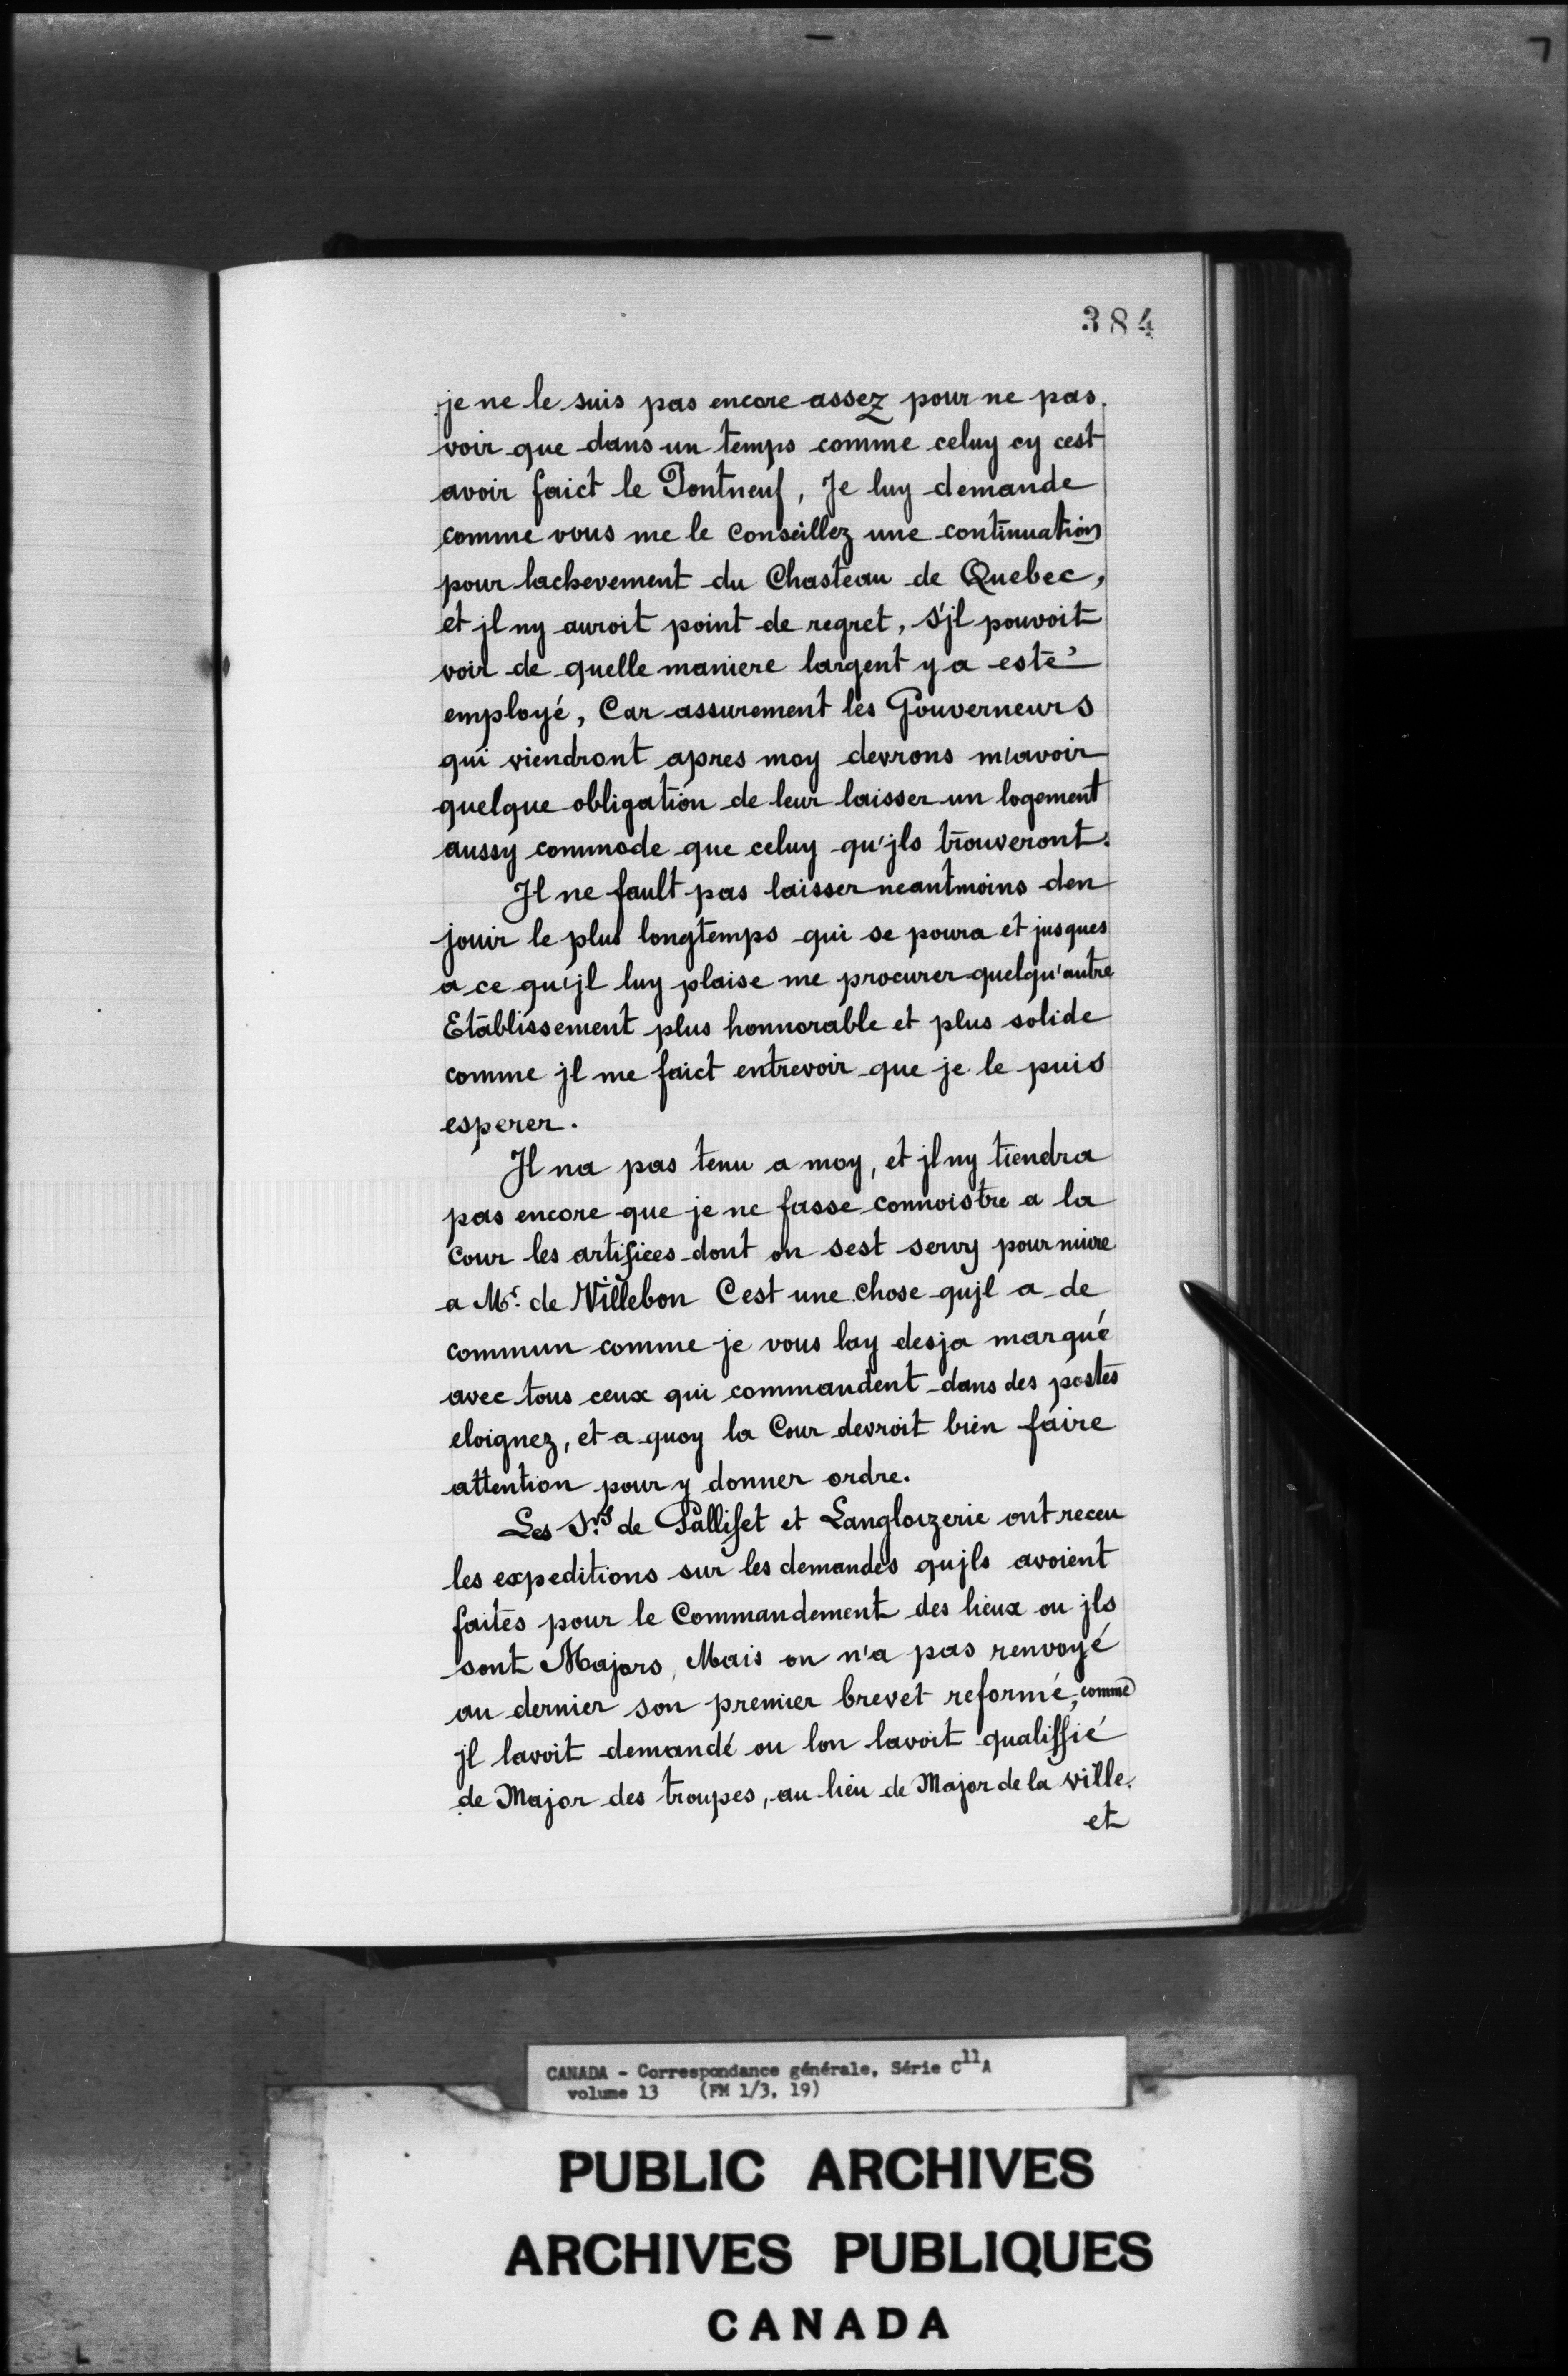 384
je ne le suis pas encore assez pour ne pas
voir que dans un temps comme celuy cy cest
avoir faict le Pontneuf, Je luy demande
comme vous me le Conseillez une continuation
pour lachevement du Chasteau de Quebec,
et jl ny auroit point de regret, s'jl pouvoit
voir de quelle maniere largent y a esté
employé, Car assurement les Gouverneurs
qui viendront apres moy devrons m'avoir
quelque obligation de leur laisser un logement
aussy commode que celuy qu'jls trouveront.
Jl ne fault pas laisser neantmoins den
jouir le plus longtemps qui se poura et jusques
a ce qu'jl luy plaise me procurer quelqu'autre
Etablissement plus honnorable et plus solide
comme jl me faict entrevoir que je le puis
esperer.
Jl na pas tenu a moy, et jl ny tiendra
pas encore que je ne fasse connoistre a la
Cour les artifices dont on sest servy pour nuire
a Mr. de Villebon Cest une chose qujl a de
commun comme je vous lay desja marqué
avec tous ceux qui commandent dans des postes
eloignez, et a quoy la Cour devroit bien faire
attention pour y donner ordre.
Les Srs de Palliset et Langloizerie ont receu
les expeditions sur les demandes qujls avoient
faites pour le Commandement des lieux ou jls
sont Majors, Mais on n'a pas renvoyé
au dernier son premier brevet reformé, comme
jl lavoit demandé ou lon lavoit qualiffié
de Major des troupes, au lieu de Major de la ville.
et
CANADA - Correspondance générale, Série C11A
volume 13 (FM 1/3, 19)
PUBLIC ARCHIVES
ARCHIVES PUBLIQUES
CANADA